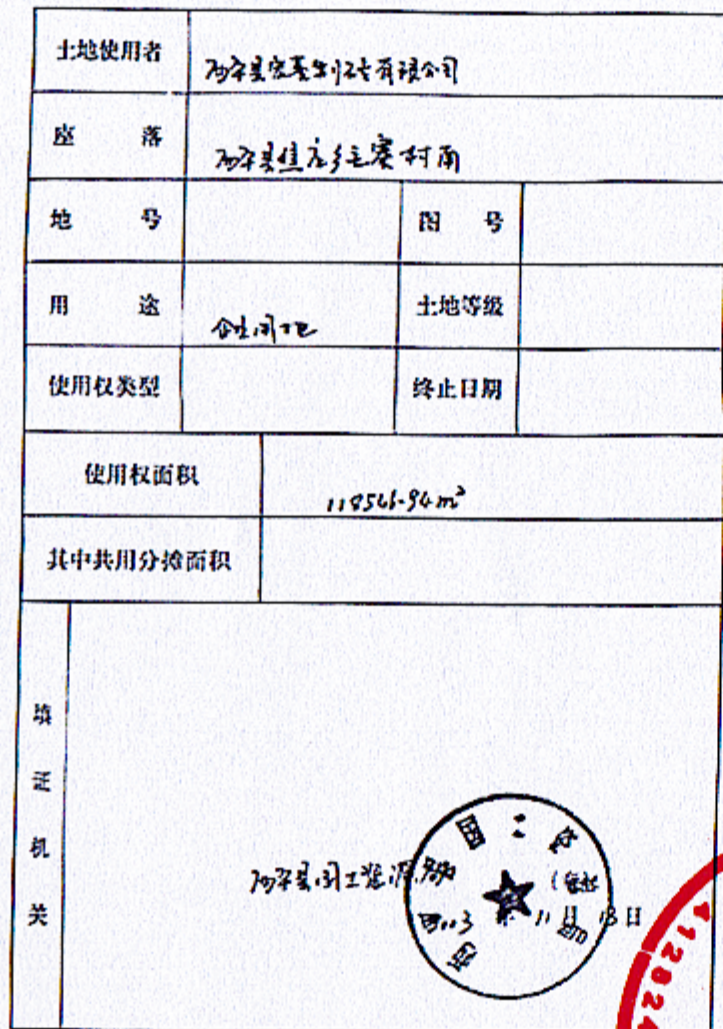 土地使用者 西平县宏基生化有限公司
座 落 西平县焦庄乡王寨村南
地 号 图 号
用 途 企业用地 土地等级
使用权类型 终止日期
使用权面积 118546.94m²
其中共用分摊面积
填证机关
西平县国土资源局
2003年11月13日
41282